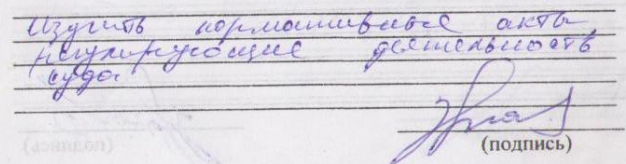 Изучить нормативные акты
регулирующие деятельность
суда
(подпись)